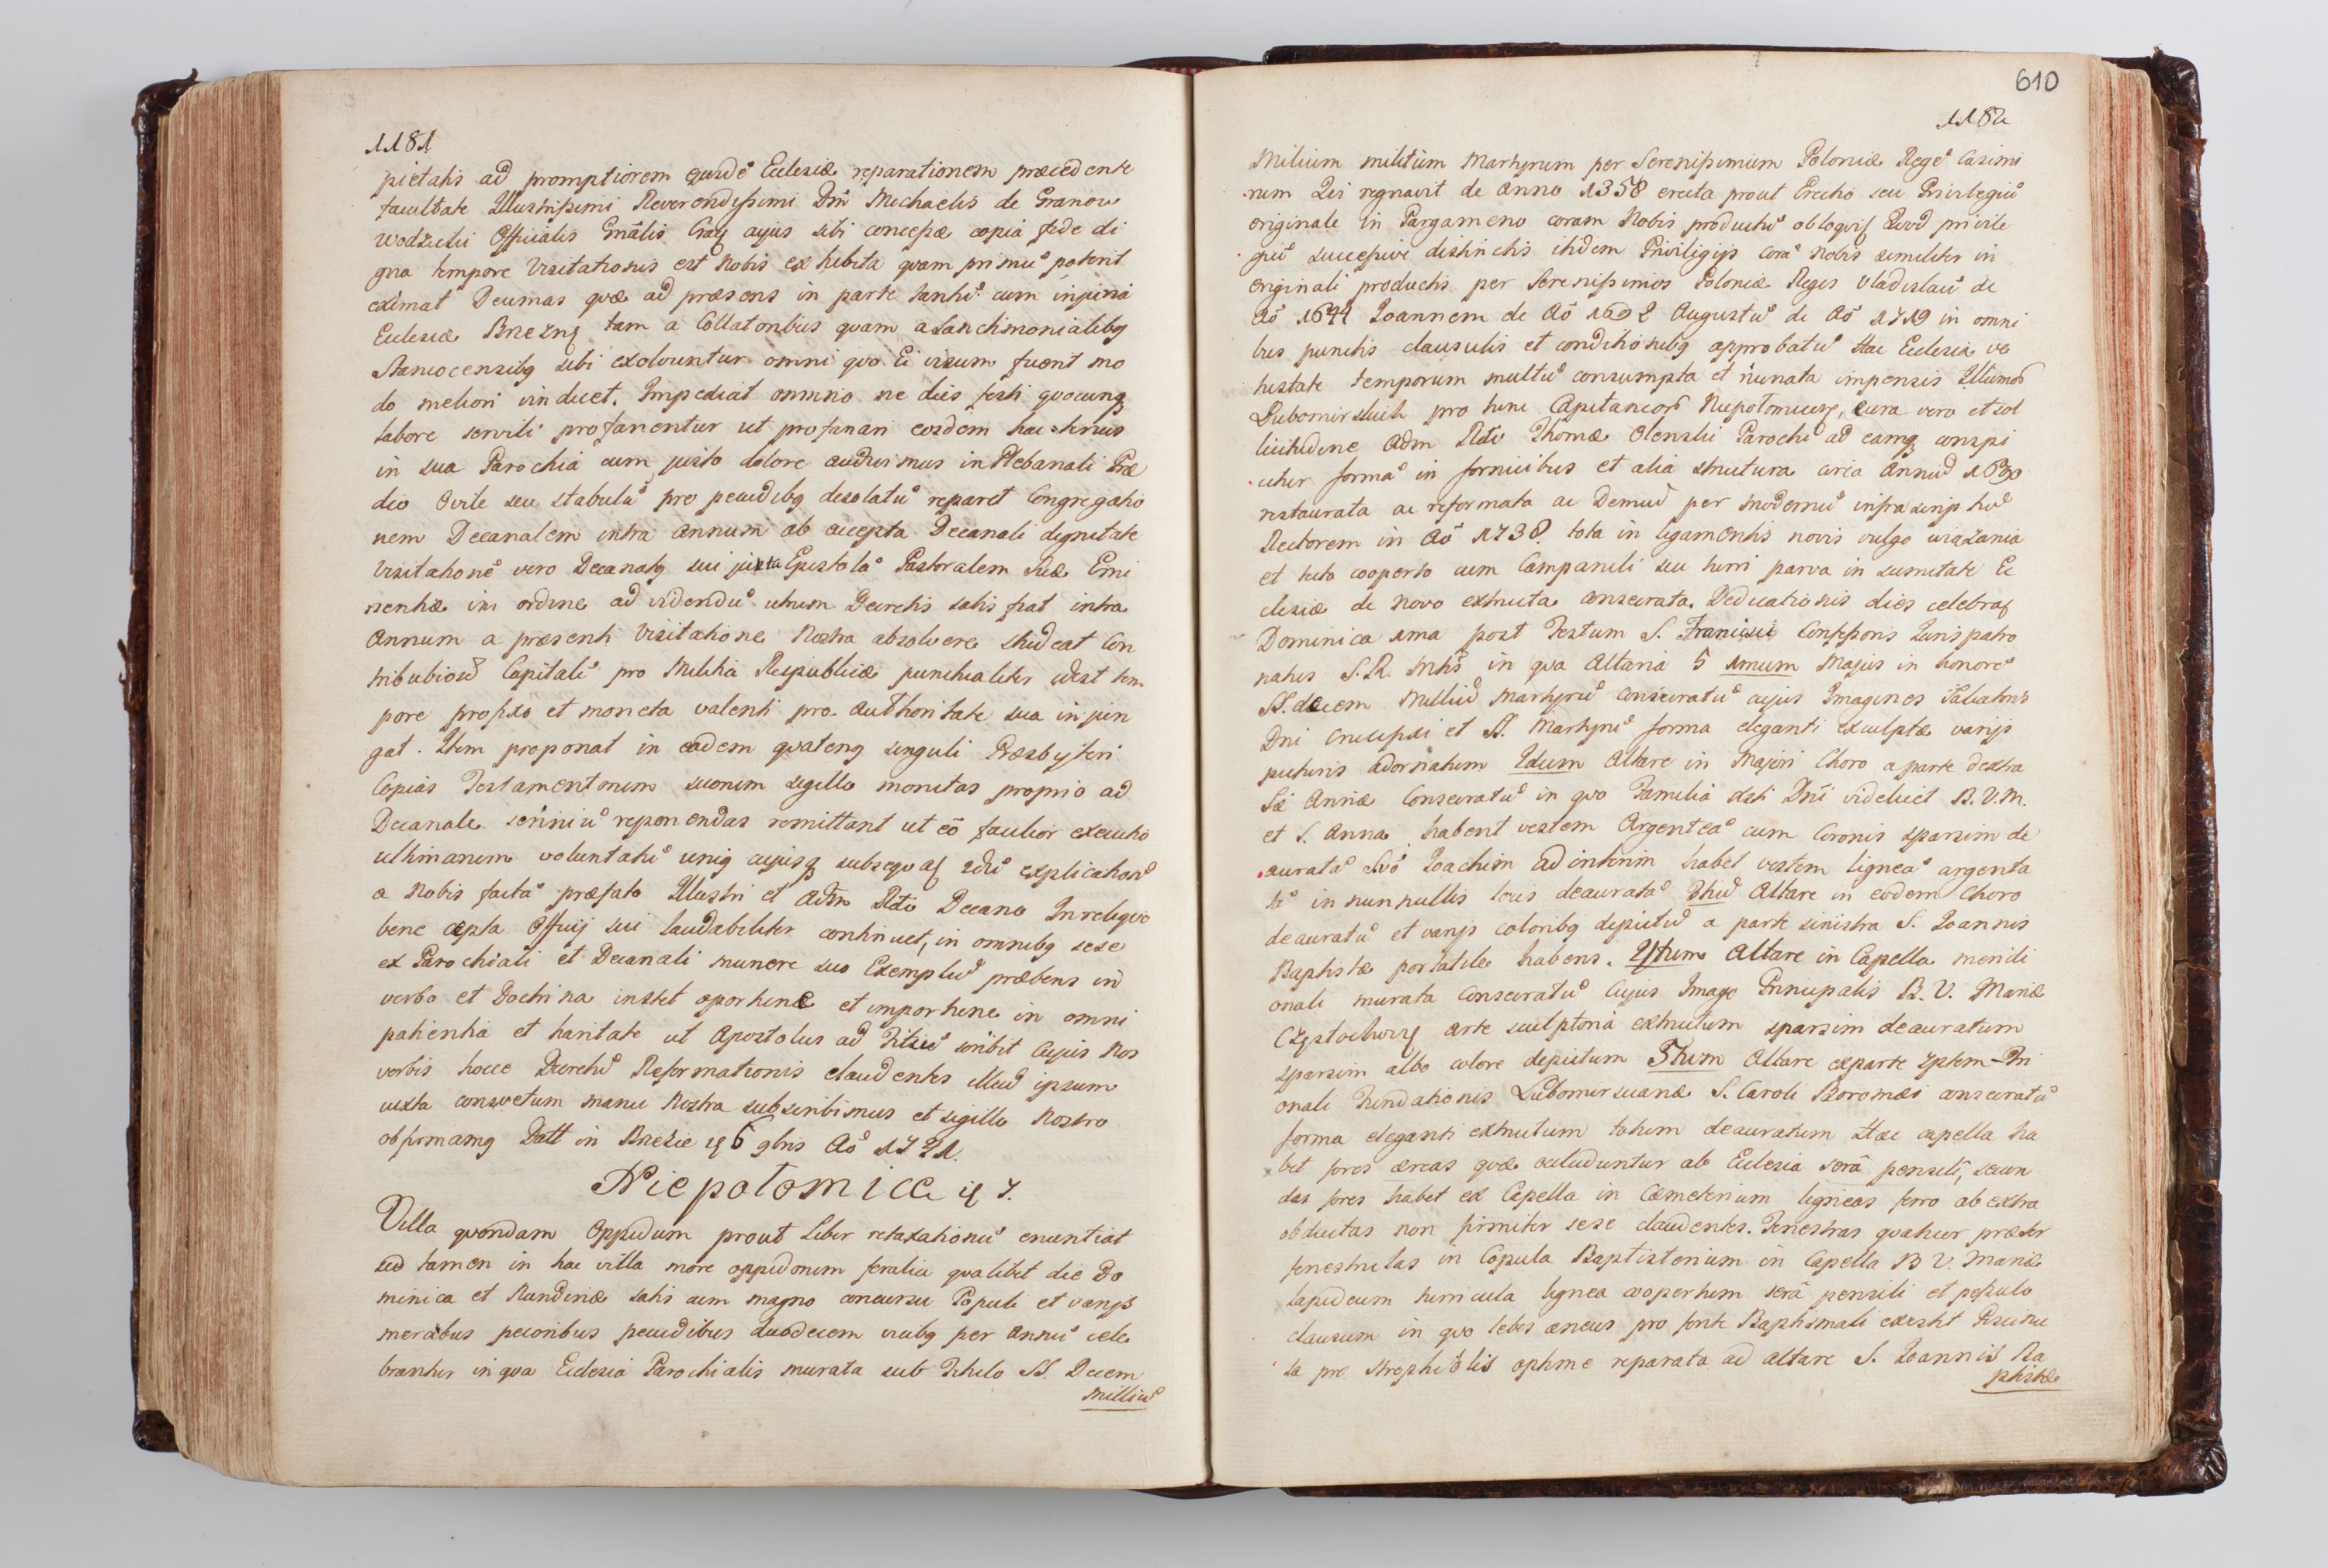 1181
pietatis ad promptiorem ejusdē Ecclesiæ reparationem præcedente
facultate Illustrissimi Reverendissimi Dnī Michaelis de Granow
Wodzicki Officialis Gnālis cujus sibi concessæ copia fide di
gna tempore Visitationis est Nobis exhibita quam primū poterit
eximat Decimas quæ ad præsens in parte tantū cum injuria
Ecclesiæ tam a Collatoribus quam a Sanctimonialibq
Staniocensibq sibi exolvuntur omni quo Ei visum fuerit mo
do meliori vindicet. Impediat omnino ne dies festi quocunq
labore servili profanentur ut profanari eosdem hactenus
in sua Parochia cum justo dolore audivimus in Plebanali Præ
dio Ovile seu stabulū pro pecudibq desolatū reparet Congregatio
nem Decanalem intra Annum ab accepta Decanali dignitate
Visitationē vero Decanatq sui juxta Epistolā Pastoralem Suæ Emi
nentiæ in ordine ad videndū utrum Decretis satis fiat intra
Annum a præsenti Visitatione Nostra absolvere studeat Con
Capitali pro Militia Reipublicæ punctualiter idest tem
pore præfixo et moneta valenti pro Authoritate sua injun
gat. Item proponat in eadem quatenq singuli Præsbyteri
Copias Testamentorum suorum sigillo munitas proprio ad
Decanale scriniū reponendas remittant ut eō facilior executio
ultimarum voluntatū cujusq
a Nobis factā præfato Illustri et Adm Rdō Decano In reliquo
bene cæpta Officij sui laudabiliter continuet, in omnibq sese
ex Parochiali et Decanali munere suo Exemplū præbens in
verbo et Doctrina instet oportune et importune in omni
patientia et haritate ut Apostolus ad Titū scribit Cujus Nos
verbis hocce Decretū Reformationis claudentes illud ipsum
iuxta consvetum manu Nostra subscribimus et sigillo Nostro
obfirmamq Datt in Brezie 6 9bris Aō 1721.
Niepolomice 7.
Villa quondam Oppidum prout Liber retaxationū enuntiat
sed tamen in hac villa more oppidorum foralia qualibet die Do
minica et Nundinæ satis cum magno concursu Populi et varijs
mercibus pecoribus pecudibus duodecem vicibq per Annū cele
brantur in qva Ecclesia Parochialis murata sub Titulo SS. Decem
Milliū
610
1182
Milium militum Martyrum per Serenissimum Poloniæ Regē Casimi
rum Qui regnavit de anno 1358 erecta prout Erectio seu Privilegiū
originale in Pargameno coram Nobis productū Quod privile
giū successive distinctis itidem Privilegijs corā Nobis similiter in
originali productis per Serenissimos Poloniæ Reges Vladislaū de
Aō 1644 Joannem de Aō 1692 Augustū de Aō 1719 in omni
bus punctis clausulis et conditionibq approbatū Hæc Ecclesia ve
tustate temporum multū consumpta et ruinata impensis
pro tunc Capitaneorū cura vero et sol
licitudine Adm Rdī Thomæ Olenski Parochi ad eamq conspi
cuter formā in fornicibus et alia structura circa Annū 1630
restaurata ac reformata ac Demū per modernū infrascriptū
Rectorem in Aō 1738 tota in ligamentis novis vulgo wiązania
et tecto cooperto cum Campanili seu turri parva in sumitate Ec
clesiæ de novo extructa consecrata. Dedicationis dies celebraf
Dominica 1ma post Festum S. Francisci Confessoris Juris patro
natus S. R. Mtis in qva Altaria 5 1mum Majus in honorē
SS. decem Milliū Martyrū consecratū cujus Imagines Salvatoris
Dni Crucifixi et SS. Martyrū forma eleganti exculptæ varijs
picturis adornatum 2dum Altare in Majori Choro a parte dextra
Sæ Annæ Consecratū in quo Familia Xsti Dnī videlicet B.V.M.
et S. Anna habent vestem Argenteā cum Coronis sparsim de
auratā Joachim ad interim habet vestem ligneā argenta
tā in nunnullis locis deauratā 3tiū Altare in eodem Choro
deauratū et varijs coloribq depictū a parte sinistra S. Joannis
Baptistæ portatile habens. 4tum Altare in Capella meridi
onali murata Consecratū Cujus Imago Principalis B. V. Mariæ
arte sculptoria extructum sparsim deauratum
sparsim albo colore depictum 5tum Altare exparte
onali Fundationis Lubomirscianæ S. Caroli Boromæi consecratū
forma eleganti extructum totum deauratum Hæc capella ha
bet fores æreas quæ ocluduntur ab Ecclesia serā pensili, secun
das fores habet ex Capella in Cæmeterium ligneas ferro ab extra
obductas non firmiter sese claudentes. Fenestras quatuor præter
fenestrulas in Copula Baptisterium in Capella B V. Mariæ
lapideum turricula lignea coopertum serā pensili et pessulo
clausum in quo lebes æneus pro fonte Baptismali existit Piscinu
la pro strophiolis optime reparata ad altare S. Joannis Ba
ptistæ